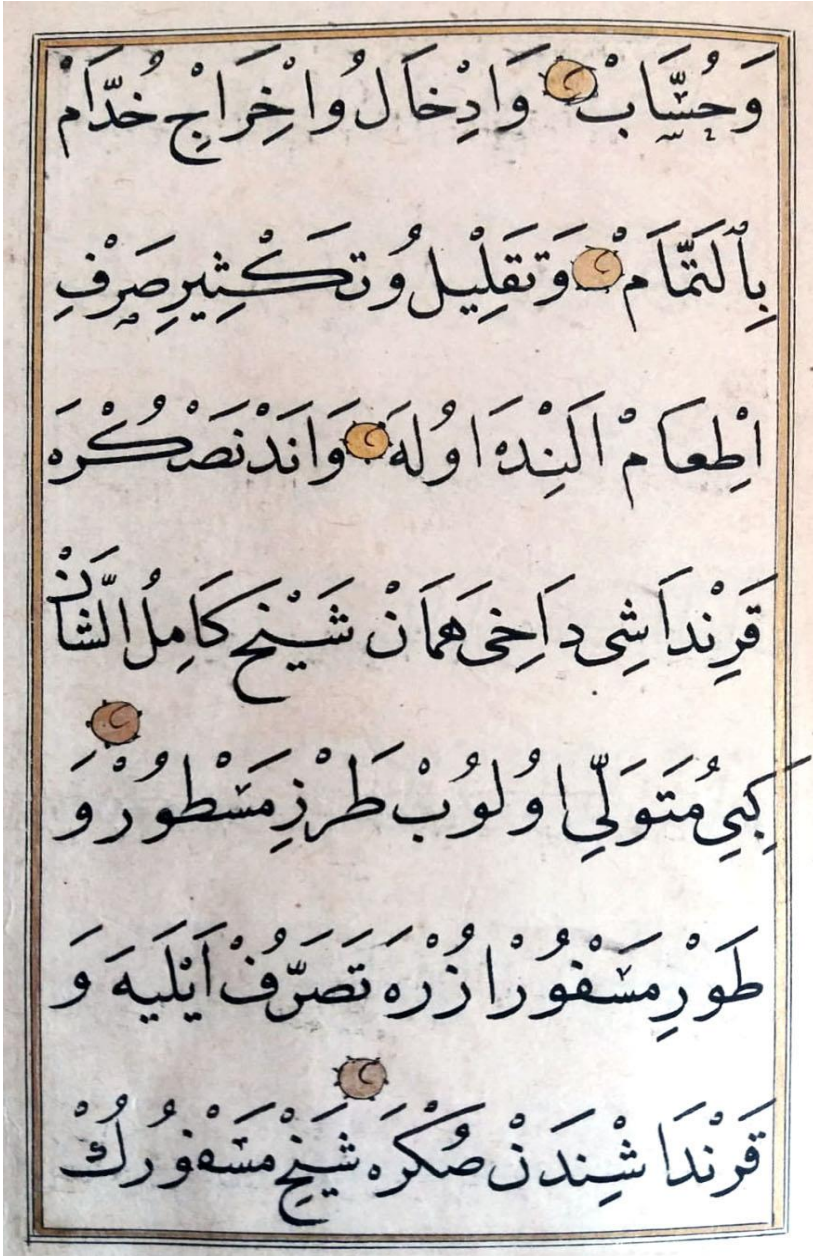 وَحُسَّابْ وَادِْخَالُ وَاِخْرَاجِ خُدَّامْ
بِٱلتَّمَامْ وَتَقْلِيلُ وتَكْثِيرِ صَرْفِ
اِطْعَامْ اَلِنْدَه اوُلَه وَانْدَنْ صَكُرَه
قَرِنْدَاشِى دَاخِى هَمَانْ شَيْخِ كَامِلُ الشَّانْ
كِبِى مُتَوَلِّى اوُلوُبْ طَرْزِ مَسْطوُرْ وَ
طَوْرِ مَسْفوُرْ اُزْرَه تَصَرُّفْ اَيْلَيَه وَ
قَرَنْدَاشِنْدَنْ صُكْرَه شَيْخِ مَسْفوُرُكْ